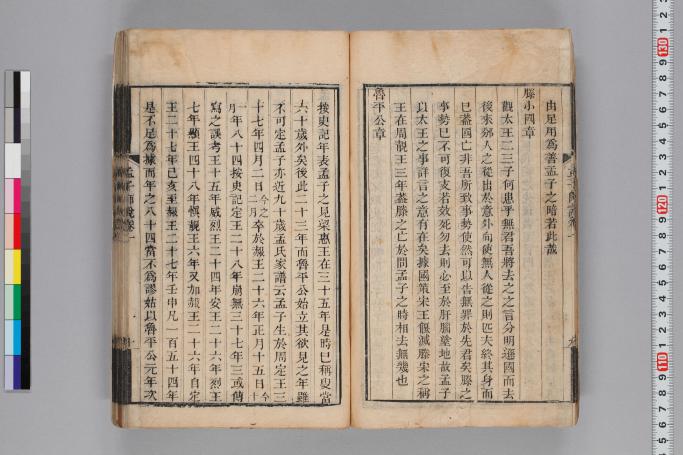 由足用為善孟子之暗若此哉
滕小國章
觀太王二三子何患乎無君吾將去之之言分明遜國而去
後來邠人之從出於意外向使無人從之則匹夫終其身而
已蓋國亡非吾所致事勢使然可以告無罪於先君矣滕之
事勢已不可復支若效死勿去則必至於肝腦塗地故孟子
以太王之事詳言之意有在矣據國策宋王偃滅滕宋之稱
王在周靚王三年蓋滕之亡於問孟子之時相去無幾也
魯平公章
按史記年表孟子之見梁惠王在三十五年是時已稱叟當
六十歲外矣後此二十三年而魯平公始立其欲見之年雖
不可定孟子亦近九十歲孟氏家譜云孟子生於周定王三
十七年四月二日今之二月卒於赧王二十六年正月十五日今十
一月年八十四按史記定王二十八年崩無三十七年三或傳
寫之誤考王十五年威烈王二十四年安王二十六年烈王
七年顯王四十八年慎靚王六年又加赧王二十六年自定
王二十七年己亥至赧王二十七年壬申凡一百五十四年
是不足為據而年之八十四當不為謬姑以魯平公元年次
孟子師說卷一